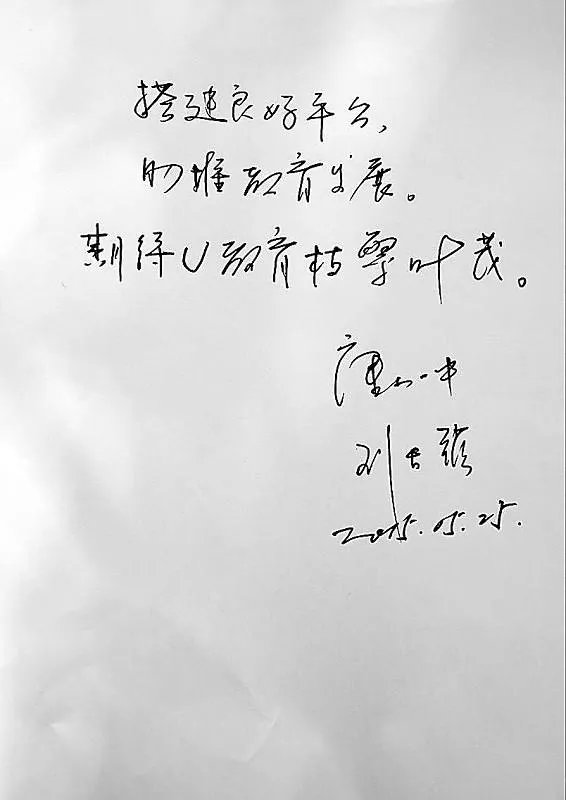 搭建良好平台，
助推教育发展。
期待U教育枝繁叶茂。
唐山一中
刘长锁
2015.05.25.